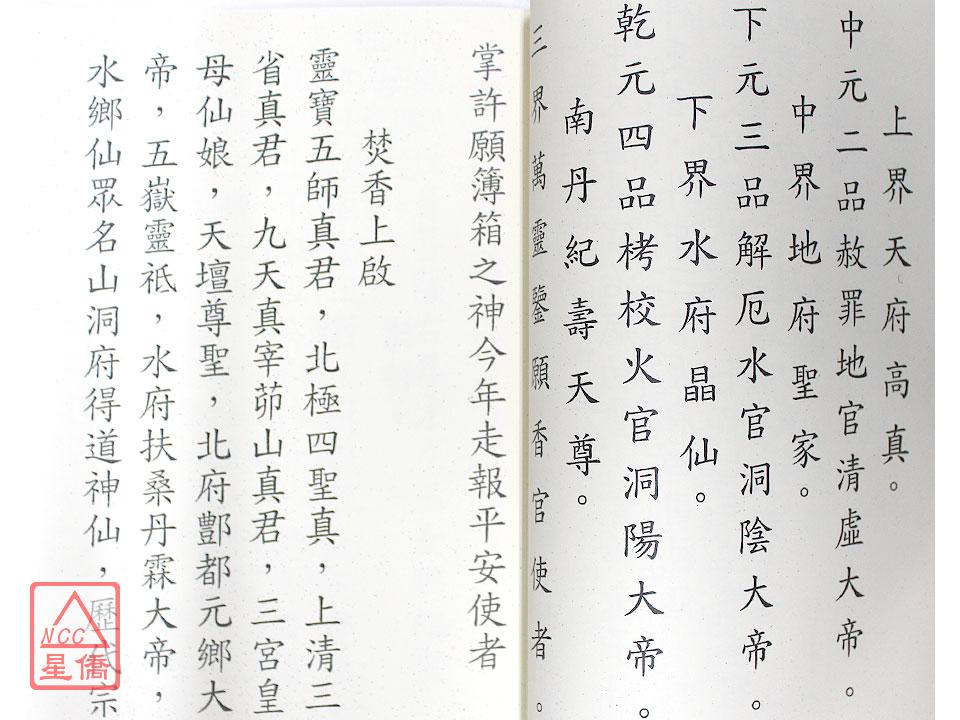 上界天府高真。
中元二品赦罪地官清虛大帝。
中界地府聖家。
下元三品解厄水官洞陰大帝。
下界水府晶仙。
乾元四品栲校火官洞陽大帝。
南丹紀壽天尊。
三界萬靈鑒願香官使者。
掌許願簿箱之神今年走報平安使者
焚香上啟
靈寶五師真君，北極四聖真，上清三
省真君，九天真宰茆山真君，三宮皇
母仙娘，天壇尊聖，北府酆都元鄉大
帝，五嶽靈祇，水府扶桑丹霖大帝，
水鄉仙眾名山洞府得道神仙，歷代宗
NCC
星僑